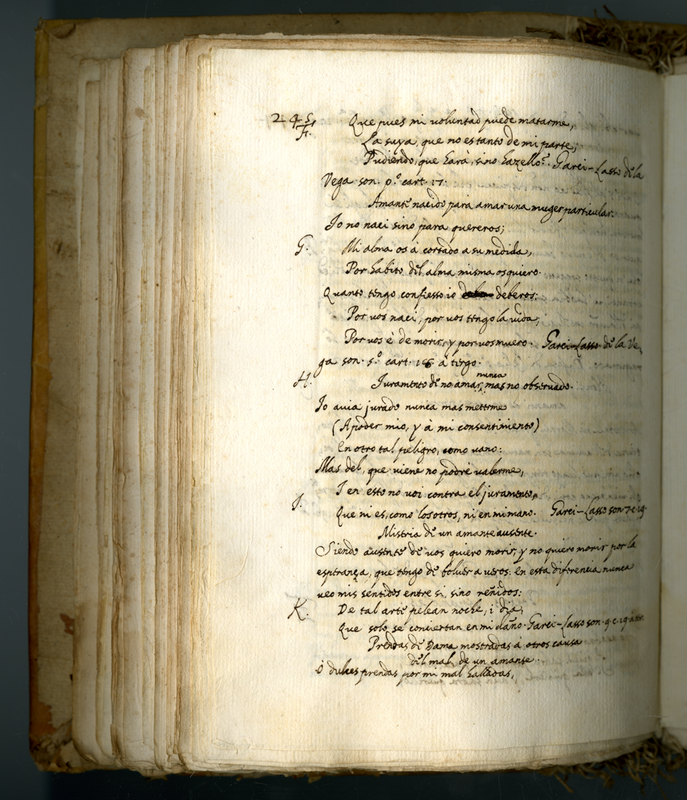 245
F. Que pues mi voluntad puede matarme,
La suya, que no es tanto de mi parte,
Pudiendo, que harà, sino hazello. Garci-Lasso de la
Vega son. 
Amante nacido para amar una muger particular.
Io no naci sino para quereros;
G. Mi alma os à cortado a su medida,
Por habito del alma misma os quiero.
Quanto tengo confiesso io deberos:
Por vos naci, por vos tengo la vida,
Por vos è de morir, y por vos muero. Garci-Lasso de la Ve,
ga son. 5.º cart. à tergo.
H. Juramento de no amar nunca mas no observado.
Io avia jurado nunca mas meterme
(A poder mio, y à mi consentimiento)
En otro tal peligro, como vano:
Mas del, que viene no podrè valerme,
I. I en esto no voi contra el juramento,
Que ni es, como los otros, ni en mi mano. Garci-Lasso son. 7
Miseria de un amante ausente.
Siendo ausente de vos quiero morir, y no quiero morir por la
esperança, que tengo de bolver a veros. En esta diferencia nunca
veo mis sentidos entre si, sino reñidos:
K. De tal arte pelean noche, i dia,
Que solo se conciertan en mi daño. Garci-Lasso son. 9
Prendas de Dama mostradas à otros causa
del mal de un amante.
O dulces prendas por mi mal halladas,